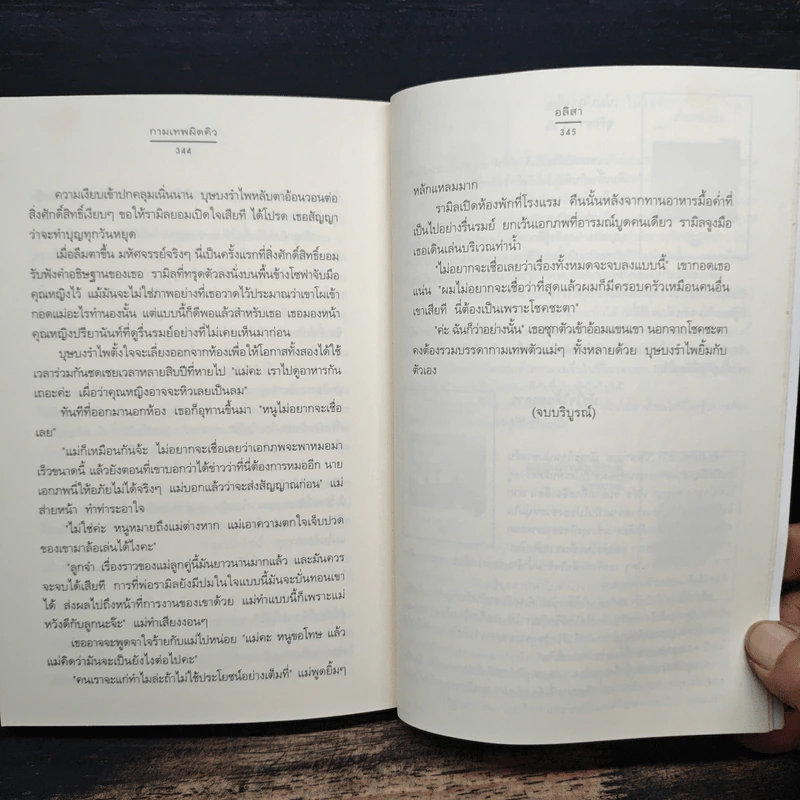 กามเทพผิดคิว
344
ความเงียบเข้าปกคลุมเนิ่นนาน บุษบงรำไพหลับตาอ้อนวอนต่อ
สิ่งศักดิ์สิทธิ์เงียบๆ ขอให้รามิลยอมเปิดใจเสียที ได้โปรด เธอสัญญา
ว่าจะทำบุญทุกวันหยุด
เมื่อลืมตาขึ้น มหัศจรรย์จริงๆ นี่เป็นครั้งแรกที่สิ่งศักดิ์สิทธิ์ยอม
รับฟังคำอธิษฐานของเธอ รามิลที่ทรุดตัวลงนั่งบนพื้นข้างโซฟาจับมือ
คุณหญิงไว้ แม้มันจะไม่ใช่ภาพอย่างที่เธอวาดไว้ประมาณว่าเขาโผเข้า
กอดแม่อะไรทำนองนั้น แต่แบบนี้ก็ดีพอแล้วสำหรับเธอ เธอมองหน้า
คุณหญิงปริยานันท์ที่ดูรื่นรมย์อย่างที่ไม่เคยเห็นมาก่อน
บุษบงรำไพตั้งใจจะเลี่ยงออกจากห้องเพื่อให้โอกาสทั้งสองได้ใช้
เวลาร่วมกันชดเชยเวลาหลายสิบปีที่หายไป "แม่คะ เราไปดูอาหารกัน
เถอะค่ะ เผื่อว่าคุณหญิงอาจจะหิวเลยเป็นลม"
ทันทีที่ออกมานอกห้อง เธอก็อุทานขึ้นมา "หนูไม่อยากจะเชื่อ
เลย"
"แม่ก็เหมือนกันจ้ะ ไม่อยากจะเชื่อเลยว่าเอกภพจะพาหมอมา
เร็วขนาดนี้ แล้วยังตอนที่เขาบอกว่าได้ข่าวว่าที่นี่ต้องการหมออีก นาย
เอกภพนี่ให้อภัยไม่ได้จริงๆ แม่บอกแล้วว่าจะส่งสัญญาณก่อน" แม่
ส่ายหน้า ทำท่าระอาใจ
"ไม่ใช่ค่ะ หนูหมายถึงแม่ต่างหาก แม่เอาความตกใจเจ็บปวด
ของเขามาล้อเล่นได้ไงคะ"
"ลูกจ๋า เรื่องราวของแม่ลูกคู่นี้มันยาวนานมากแล้ว และมันควร
จะจบได้เสียที การที่พ่อรามิลยังมีปมในใจแบบนี้มันจะบั่นทอนเขา
ได้ ส่งผลไปถึงหน้าที่การงานของเขาด้วย แม่ทำแบบนี้ก็เพราะแม่
หวังดีกับลูกนะจ๊ะ" แม่ทำเสียงงอนๆ
เธออาจจะพูดจาใจร้ายกับแม่ไปหน่อย "แม่คะ หนูขอโทษ แล้ว
แม่คิดว่ามันจะเป็นยังไงต่อไปคะ"
"คนเราจะแก่ทำไมล่ะถ้าไม่ใช้ประโยชน์อย่างเต็มที่" แม่พูดยิ้มๆ
อลิสา
345
หลักแหลมมาก
รามิลเปิดห้องพักที่โรงแรม คืนนั้นหลังจากทานอาหารมื้อค่ำที่
เป็นไปอย่างรื่นรมย์ ยกเว้นเอกภพที่อารมณ์บูดคนเดียว รามิลจูงมือ
เธอเดินเล่นบริเวณท่าน้ำ
"ไม่อยากจะเชื่อเลยว่าเรื่องทั้งหมดจะจบลงแบบนี้" เขากอดเธอ
แน่น "ผมไม่อยากจะเชื่อว่าที่สุดแล้วผมก็มีครอบครัวเหมือนคนอื่น
เขาเสียที นี่ต้องเป็นเพราะโชคชะตา"
"ค่ะ ฉันก็ว่าอย่างนั้น" เธอซุกตัวเข้าอ้อมแขนเขา นอกจากโชคชะตา
คงต้องรวมบรรดากามเทพตัวแม่ๆ ทั้งหลายด้วย บุษบงรำไพยิ้มกับ
ตัวเอง
(จบบริบูรณ์)